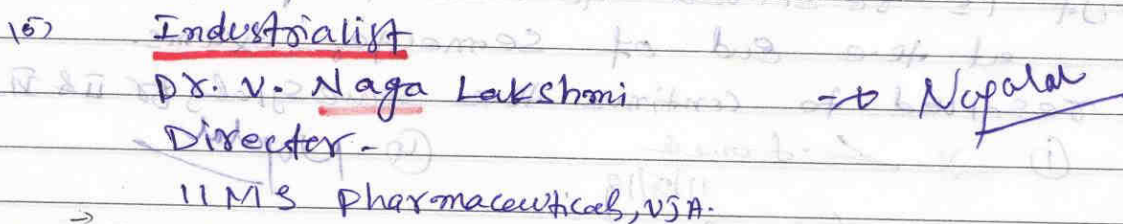 15) Industrialist
Dr. V. Naga Lakshmi →
Director -
IIMS Pharmaceuticals, VJA.